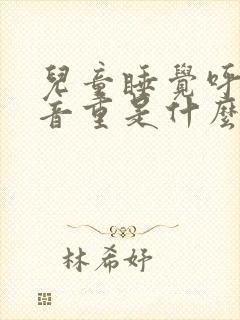 兒童睡覺呼
音重是什麼
林希妤